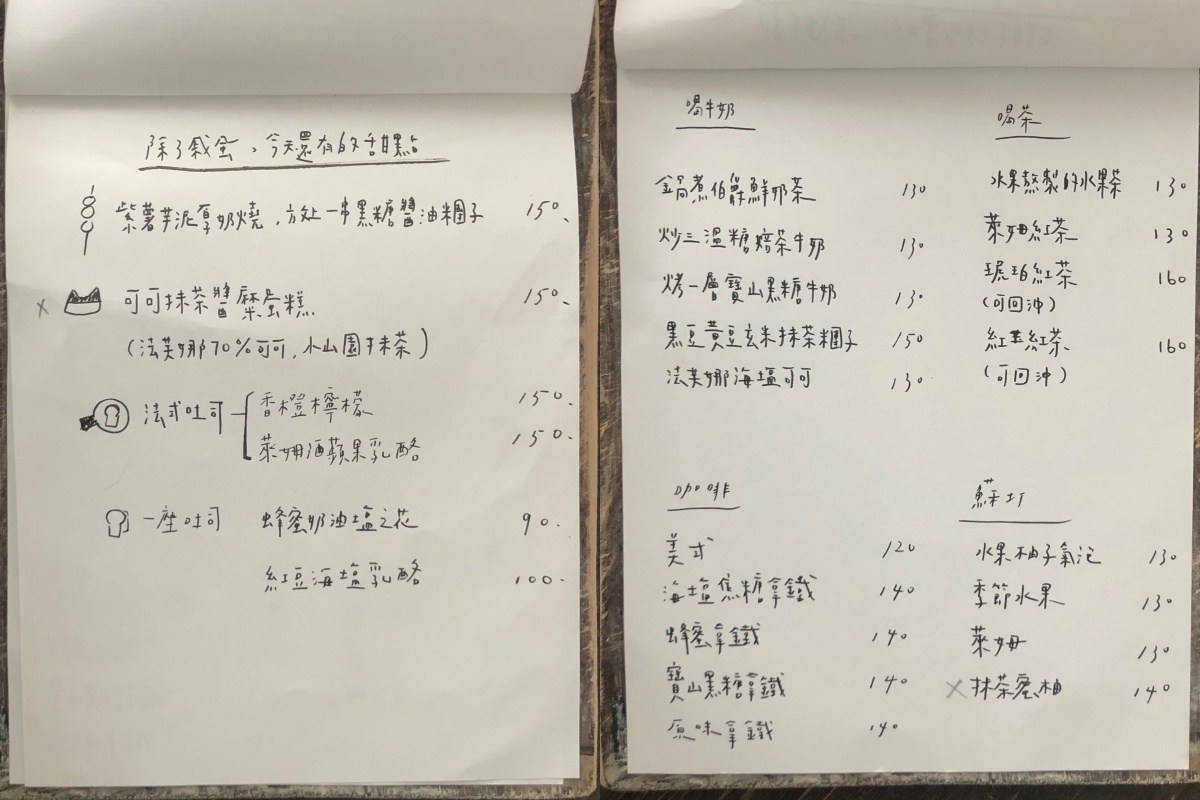 除了戚風，今天還有的甜點
紫薯芋泥厚奶燒，方处一串黑糖醬油糰子 150.
x 可可抹茶醬麻蛋糕 150.
(法芙娜70%可可，小山園抹茶)
法式吐司 香橙檸檬 150.
萊姆酒蘋果乳酪 150.
一座吐司 蜂蜜奶油塩之花 90.
紅豆海塩乳酪 100.
喝牛奶
鍋煮伯爵鮮奶茶 130
炒三溫糖焙茶牛奶 130
烤一層寶山黑糖牛奶 130
黑豆黃豆玄米抹茶糰子 150
法芙娜海塩可可 130
喝茶
水果熬製的水果茶 130
萊姆紅茶 130
琥珀紅茶 160
(可回沖)
紅玉紅茶 160
(可回沖)
咖啡
美式 120
海塩焦糖拿鐵 140
蜂蜜拿鐵 140
寶山黑糖拿鐵 140
原味拿鐵 140
蘇打
水果柚子氣泡 130
季節水果 130
萊姆 130
x 抹茶蜜柚 140